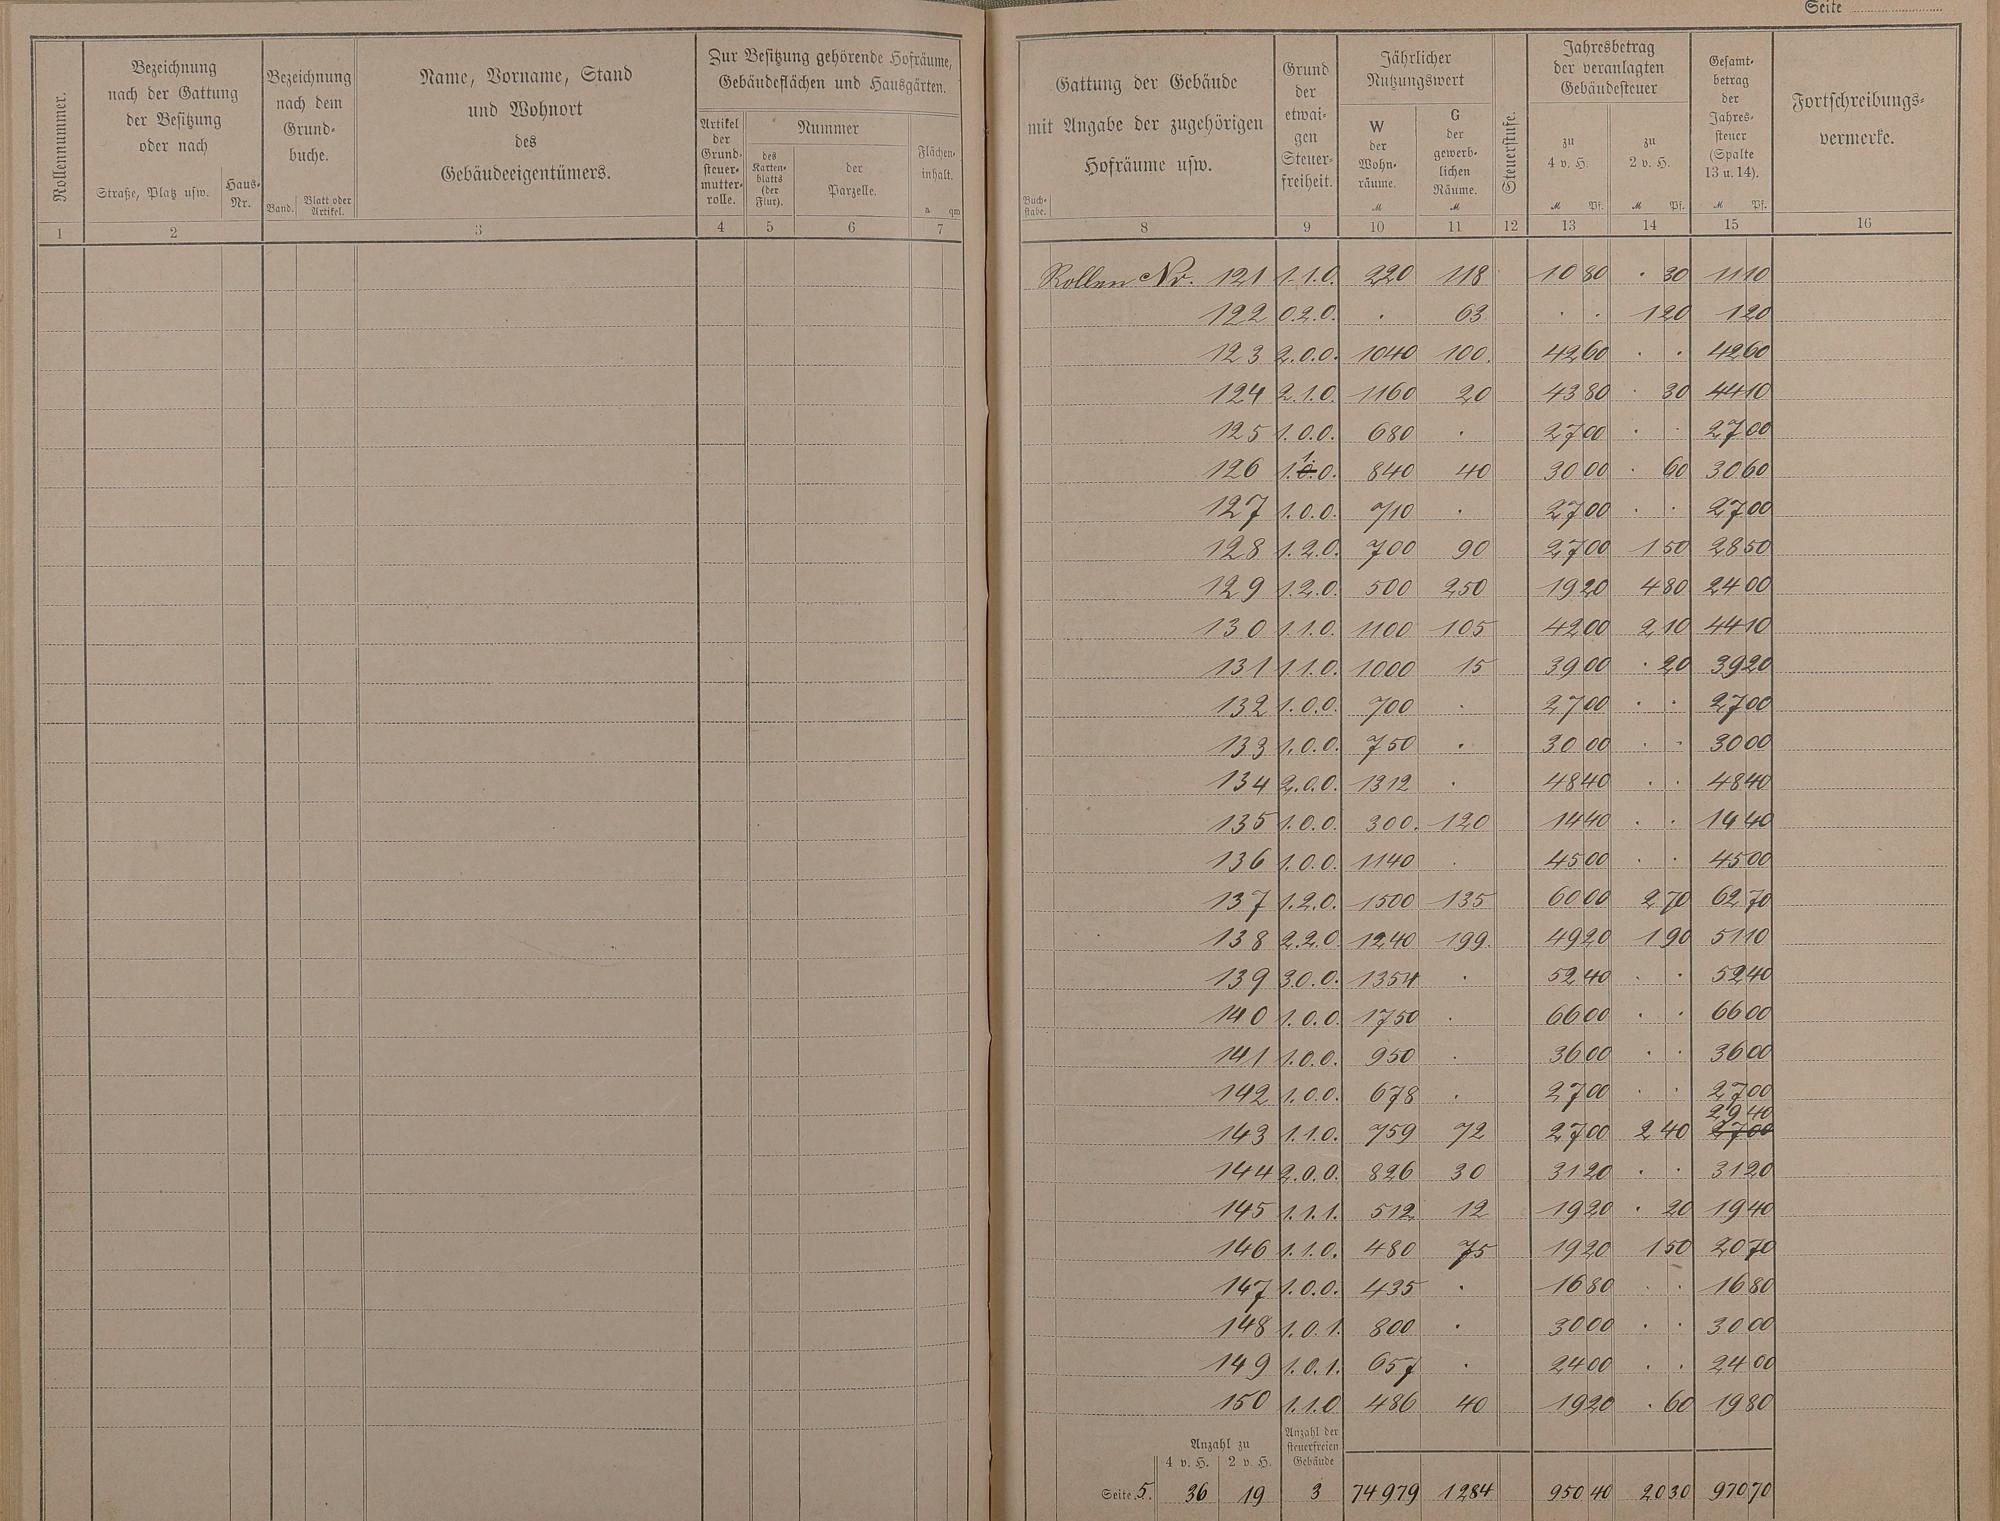 Seite
Rollennummer.
Bezeichnung
nach der Gattung
der Besitzung
oder nach
Straße, Platz usw.
Haus-
Nr.
Bezeichnung
nach dem
Grund-
buche.
Band.
Blatt oder
Artikel.
Name, Vorname, Stand
und Wohnort
des
Gebäudeeigentümers.
Zur Besitzung gehörende Hofräume,
Gebäudeflächen und Hausgärten.
Artikel
der
Grund-
steuer-
mutter-
rolle.
Nummer
des
Karten-
blatts
(der
Flur).
der
Parzelle.
Flächen-
inhalt.
a qm
1 2 3 4 5 6 7
Gattung der Gebäude
mit Angabe der zugehörigen
Hofräume usw.
Buch-
stabe.
Grund
der
etwai-
gen
Steuer-
freiheit.
Jährlicher
Nutzungswert
W
der
Wohn-
räume.
M
G
der
gewerb-
lichen
Räume.
M
Steuerstufe.
Jahresbetrag
der veranlagten
Gebäudesteuer
zu
4 v. H.
M Pf.
zu
2 v. H.
M Pf.
Gesamt-
betrag
der
Jahres-
steuer
(Spalte
13 u. 14).
M Pf.
Fortschreibungs-
vermerke.
8 9 10 11 12 13 14 15 16
Rollen Nr. 121 1.1.0. 220 118 10 80 . 30 11 10
122 0.2.0. . 63 . . 1 20 1 20
123 2.0.0. 1040 100. 42 60 . . 42 60
124 2.1.0. 1160 20 43 80 . 30 44 10
125 1.0.0. 680 . 27 00 . . 27 00
126 1.0.0. 1. 840 40 30 00 . 60 30 60
127 1.0.0. 710 . 27 00 . . 27 00
128 1.2.0. 700 90 27 00 1 50 28 50
129 1.2.0. 500 250 19 20 4 80 24 00
130 1.1.0. 1100 105 42 00 2 10 44 10
131 1.1.0. 1000 15 39 00 . 20 39 20
132 1.0.0. 700 . 27 00 . . 27 00
133 1.0.0. 750 . 30 00 . . 30 00
134 2.0.0. 1312 . 48 40 . . 48 40
135 1.0.0. 300. 120 14 40 . . 14 40
136 1.0.0. 1140 . 45 00 . . 45 00
137 1.2.0. 1500 135 60 00 2 70 62 70
138 2.2.0 1240 199. 49 20 1 90 51 10
139 3.0.0. 1354 . 52 40 . . 52 40
140 1.0.0. 1750 . 66 00 . . 66 00
141 1.0.0. 950 . 36 00 . . 36 00
142 1.0.0. 678 . 27 00 . . 27 00
29 40
143 1.1.0. 759 72 27 00 2 40 27 00
144 2.0.0. 826 30 31 20 . . 31 20
145 1.1.1. 512 12 19 20 . 20 19 40
146 1.1.0. 480 75 19 20 1 50 20 70
147 1.0.0. 435 . 16 80 . . 16 80
148 1.0.1. 800 . 30 00 . . 30 00
149 1.0.1. 657 . 24 00 . . 24 00
150 1.1.0 486 40 19 20 . 60 19 80
Anzahl zu
4 v. H. 2 v. H.
Anzahl der
steuerfreien
Gebäude
Seite 5. 36 19 3 74979 1284 950 40 20 30 970 70